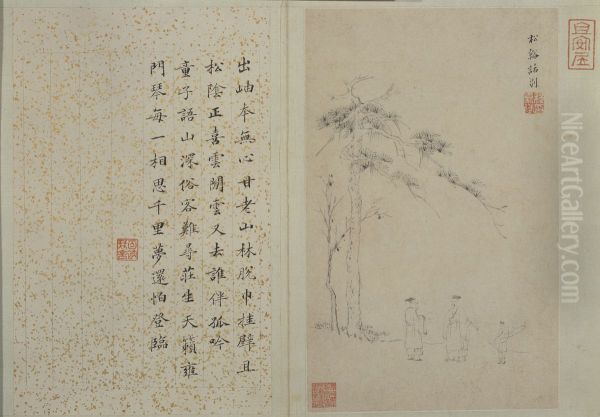 宜安居
松谿話別
出岫本無心甘老山林脫巾挂壁且
松陰正喜雲閒雲又去誰伴孤吟
童子語山深俗客難尋莊生天籟雍
門琴每一相思千里夢還怕登臨
NiceArtGallery.com